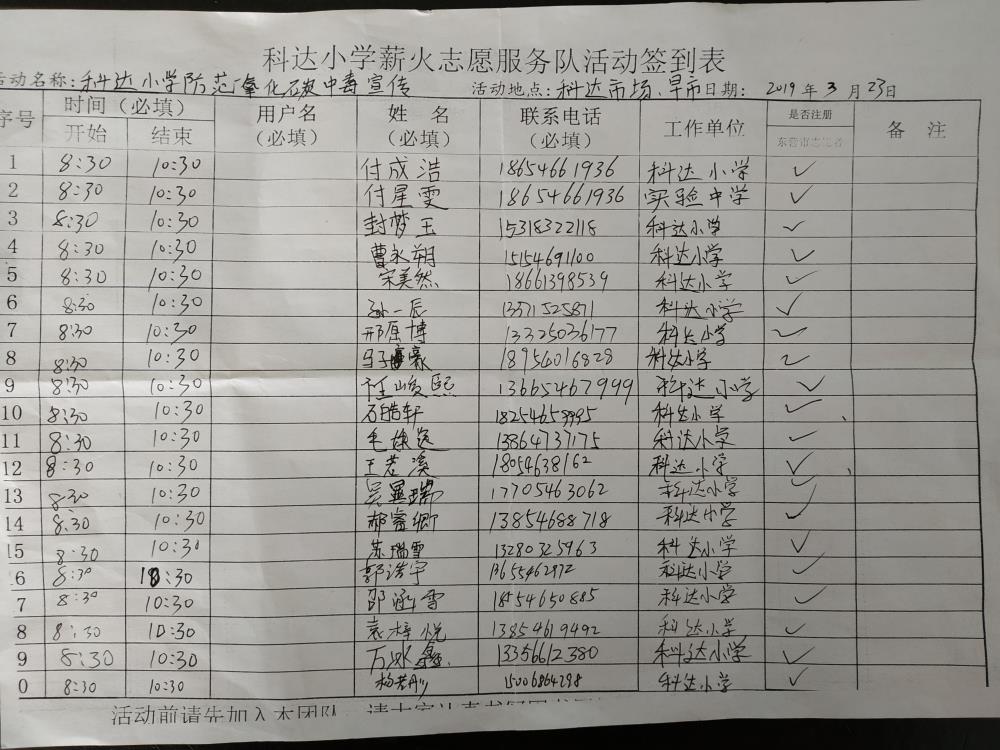 科达小学薪火志愿服务队活动签到表
活动名称:科达小学防范一氧化碳中毒宣传 活动地点:科达市场、早市 日期: 2019 年 3 月 23 日
序号 时间(必填) 用户名(必填) 姓 名(必填) 联系电话(必填) 工作单位 是否注册 备 注
开始 结束 东营市志愿者
1 8:30 10:30 付成浩 18654661936 科达小学 ✓
2 8:30 10:30 付星雯 18654661936 实验中学 ✓
3 8:30 10:30 封梦玉 15318322118 科达小学 ✓
4 8:30 10:30 曹永朔 15154691100 科达小学 ✓
5 8:30 10:30 宋美然 18661398539 科达小学 ✓
6 8:30 10:30 孙一辰 13371525871 科达小学 ✓
7 8:30 10:30 邢原博 13325036177 科达小学 ✓
8 8:30 10:30 18954016828 科达小学 ✓
9 8:30 10:30 任峻熙 13665467999 科达小学 ✓
10 8:30 10:30 石皓轩 科达小学 ✓
11 8:30 10:30 13864737175 科达小学 ✓
12 8:30 10:30 王若溪 18054638162 科达小学 ✓
13 8:30 10:30 17705463062 科达小学 ✓
14 8:30 10:30 郝睿卿 13854688718 科达小学 ✓
15 8:30 10:30 苏瑞雪 13280325963 科达小学 ✓
6 8:30 10:30 郭浩宇 科达小学 ✓
7 8:30 10:30 邵涵雪 18554650885 科达小学 ✓
8 8:30 10:30 袁梓悦 13854619492 科达小学 ✓
9 8:30 10:30 13356612380 科达小学 ✓
0 8:30 10:30 15006864298 科达小学 ✓
活动前请先加入本团队